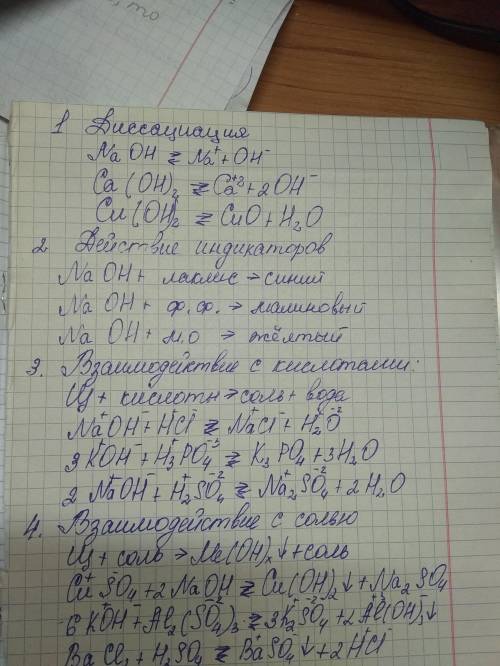 , то
1 Диссациация
NaOH ⇄ Na⁺ + OH⁻
Ca(OH)₂ ⇄ Ca⁺² + 2OH⁻
Cu(OH)₂ ⇄ CuO + H₂O
2 Действие индикаторов
NaOH + лакмус → синий
NaOH + ф.ф. → малиновый
NaOH + м.о → жёлтый
3. Взаимодействие с кислотами:
Щ + кислоты → соль + вода
Na⁺OH⁻ + H⁺Cl⁻ ⇄ Na⁺Cl⁻ + H₂⁺O⁻²
3K⁺OH⁻ + H₃⁺PO₄⁻³ ⇄ K₃PO₄ + 3H₂O
2Na⁺OH⁻ + H₂⁺SO₄⁻² ⇄ Na₂⁺SO₄⁻² + 2H₂O
4. Взаимодействие с солью
Щ + соль → Me(OH)ₓ↓ + соль
CuSO₄ + 2NaOH ⇄ Cu(OH)₂↓ + Na₂SO₄
6KOH + Al₂(SO₄)₃ ⇄ 3K₂SO₄ + 2Al(OH)₃↓
BaCl₂ + H₂SO₄ ⇄ BaSO₄↓ + 2HCl